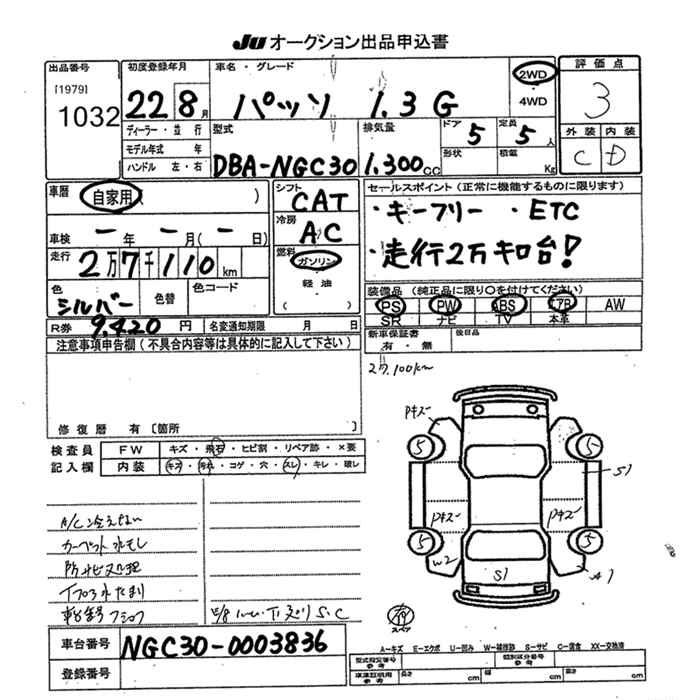 JU オークション出品申込書
出品番号
[1979]
1032
初度登録年月
22 8月
車名・グレード
パッソ 1.3 G
2WD
4WD
評価点
3
外装 内装
C D
ディーラー・並行
モデル年式 年
ハンドル 左・右
型式
DBA-NGC30
排気量
1.300cc
ドア 5
形状
定員 5人
積載 Kg
車歴
自家用( )
車検 ー年ー月(ー日)
走行
2万7千110km
色
シルバー
色替
色コード
R券 9.420円
名変通知期限 月 日
シフト
CAT
冷房
AC
燃料
ガソリン
・
軽油
( )
セールスポイント(正常に機能するものに限ります)
・キーフリー ・ETC
・走行2万キロ台!
装備品(純正品に限り○を付けてください)
PS PW ABS エアB AW
SR ナビ TV 本革
新車保証書
有・無
後日品
27.100km
注意事項申告欄(不具合内容等は具体的に記入して下さい)
修復歴 有〔箇所
検査員
記入欄
FW キズ・飛石・ヒビ割・リペア跡・×要
内装 キズ・汚れ・コゲ・穴・スレ・キレ・破レ
A/C冷えない
カーペット水モレ
防サビ処理
Pキズ
5 5
S1
Pキズ Pキズ
5 5
W2 S1 A1
有
スペア
車台番号 NGC30-0003836
登録番号
A―キズ E―エクボ U―凹み W―補修跡 S―サビ C―腐食 XX―交換済
型式指定番号
参考
類別区分番号
参考
車庫証明用
参考
長さ cm
幅 cm
高さ cm